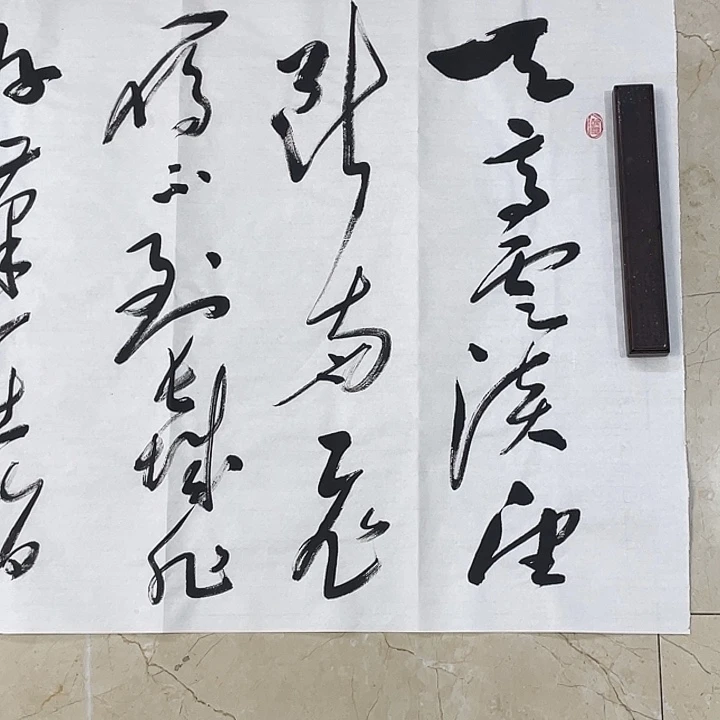 天高雲淡望
斷南飛
雁不到長城非
好